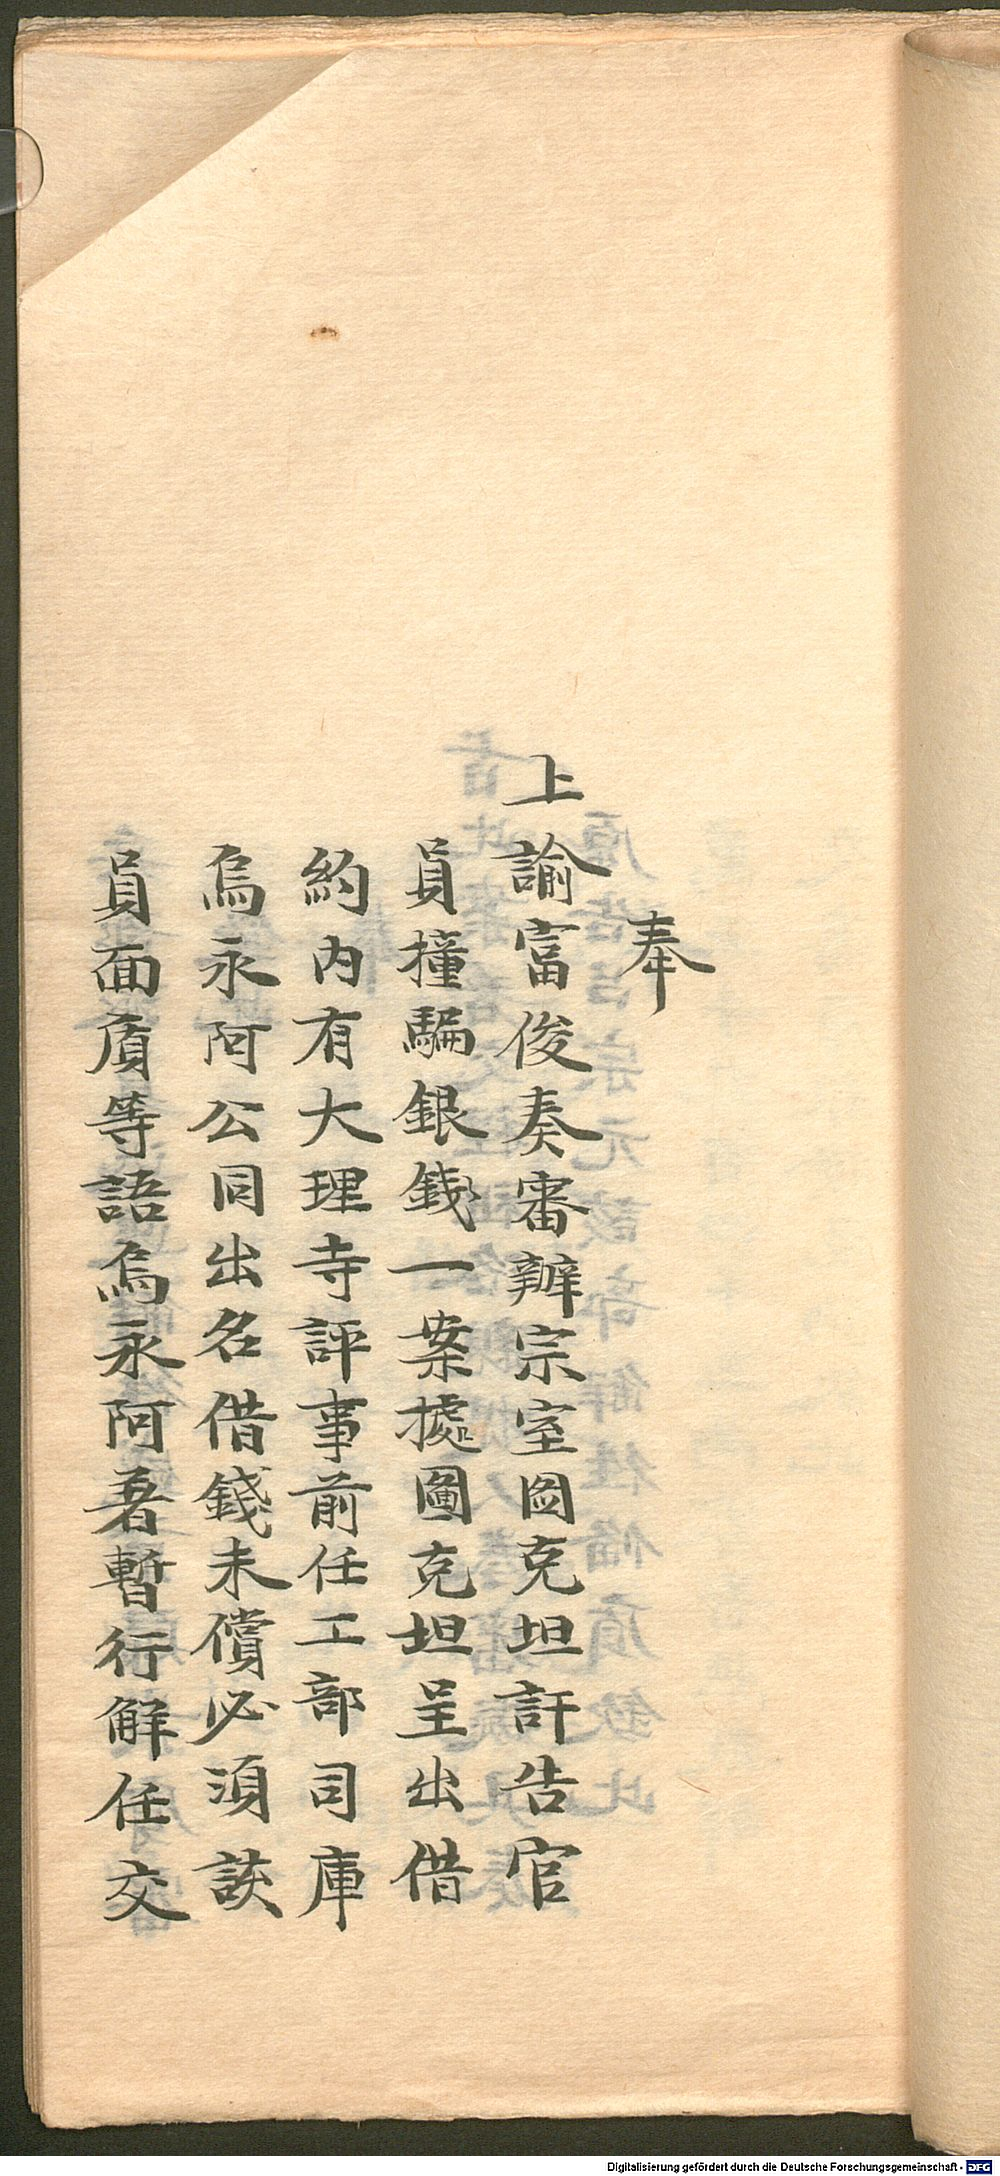 奉
上諭富俊奏審辦宗室圖克坦訐告官
員撞騙銀錢一案據圖克坦呈出借
約內有大理寺評事前任工部司庫
烏永阿公同出名借錢未償必須該
員面質等語烏永阿著暫行解任交
Digitalisierung gefördert durch die Deutsche Forschungsgemeinschaft - DFG